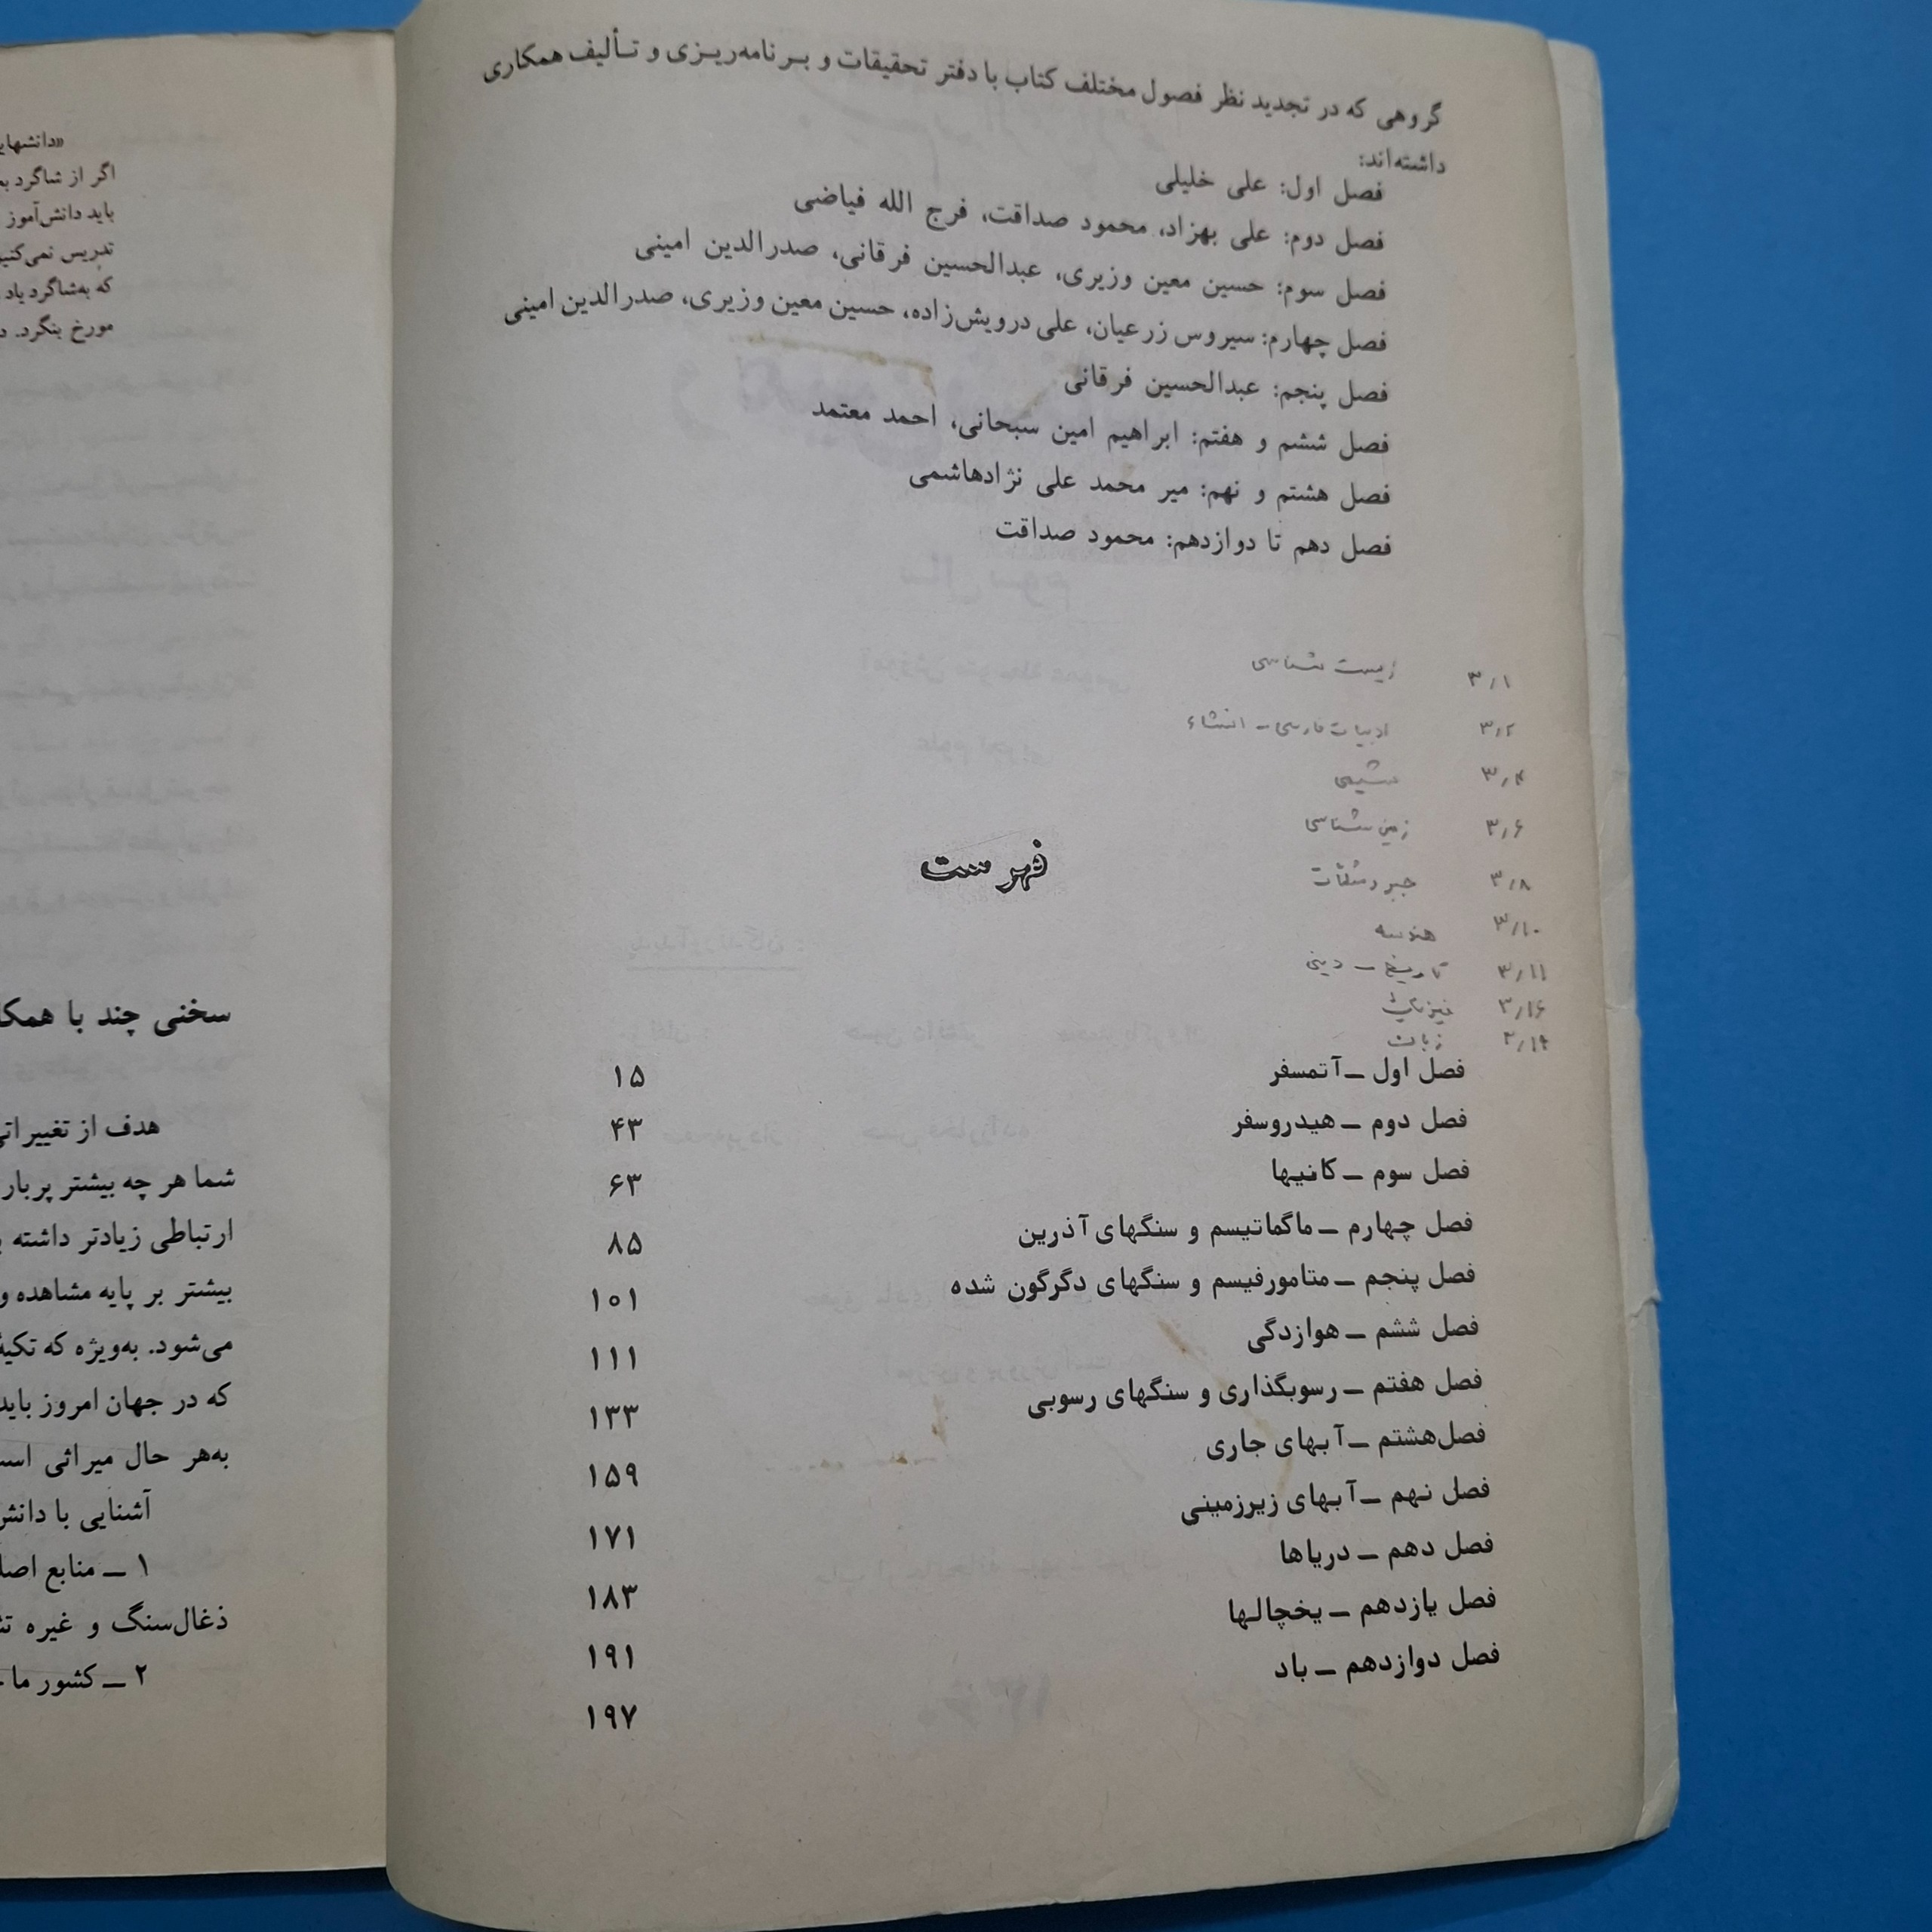 گروهی که در تجدید نظر فصول مختلف کتاب با دفتر تحقیقات و برنامه‌ریزی و تألیف همکاری
داشته‌اند:
فصل اول: علی خلیلی
فصل دوم: علی بهزاد، محمود صداقت، فرج الله فیاضی
فصل سوم: حسین معین وزیری، عبدالحسین فرقانی، صدرالدین امینی
فصل چهارم: سیروس زرعیان، علی درویش‌زاده، حسین معین وزیری، صدرالدین امینی
فصل پنجم: عبدالحسین فرقانی
فصل ششم و هفتم: ابراهیم امین سبحانی، احمد معتمد
فصل هشتم و نهم: میر محمد علی نژادهاشمی
فصل دهم تا دوازدهم: محمود صداقت
۳/۱ زیست شناسی
۳/۲ ادبیات فارسی - انشاء
۳/۴ شیمی
۳/۶ زمین شناسی
۳/۸ جبر و مثلثات
۳/۱۰ هندسه
۳/۱۱ تاریخ - دینی
۳/۱۶ فیزیک
زبان
فهرست
فصل اول ــ آتمسفر ۱۵
فصل دوم ــ هیدروسفر ۴۳
فصل سوم ــ کانیها ۶۳
فصل چهارم ــ ماگماتیسم و سنگهای آذرین ۸۵
فصل پنجم ــ متامورفیسم و سنگهای دگرگون شده ۱۰۱
فصل ششم ــ هوازدگی ۱۱۱
فصل هفتم ــ رسوبگذاری و سنگهای رسوبی ۱۳۳
فصل هشتم ــ آبهای جاری ۱۵۹
فصل نهم ــ آبهای زیرزمینی ۱۷۱
فصل دهم ــ دریاها ۱۸۳
فصل یازدهم ــ یخچالها ۱۹۱
فصل دوازدهم ــ باد ۱۹۷
«دانشهای
اگر از شاگرد
باید دانش‌آموز
تدریس نمی‌کنیم
که به‌شاگرد یاد
مورخ بنگرد.
سخنی چند با
هدف از تغییراتی
شما هر چه بیشتر پربار
ارتباطی زیادتر داشته
بیشتر بر پایه مشاهده و
می‌شود. به‌ویژه که
که در جهان امروز باید
به‌هر حال میراثی
آشنایی با دانش
۱ ــ منابع
ذغال‌سنگ و غیره
۲ ــ کشور ما